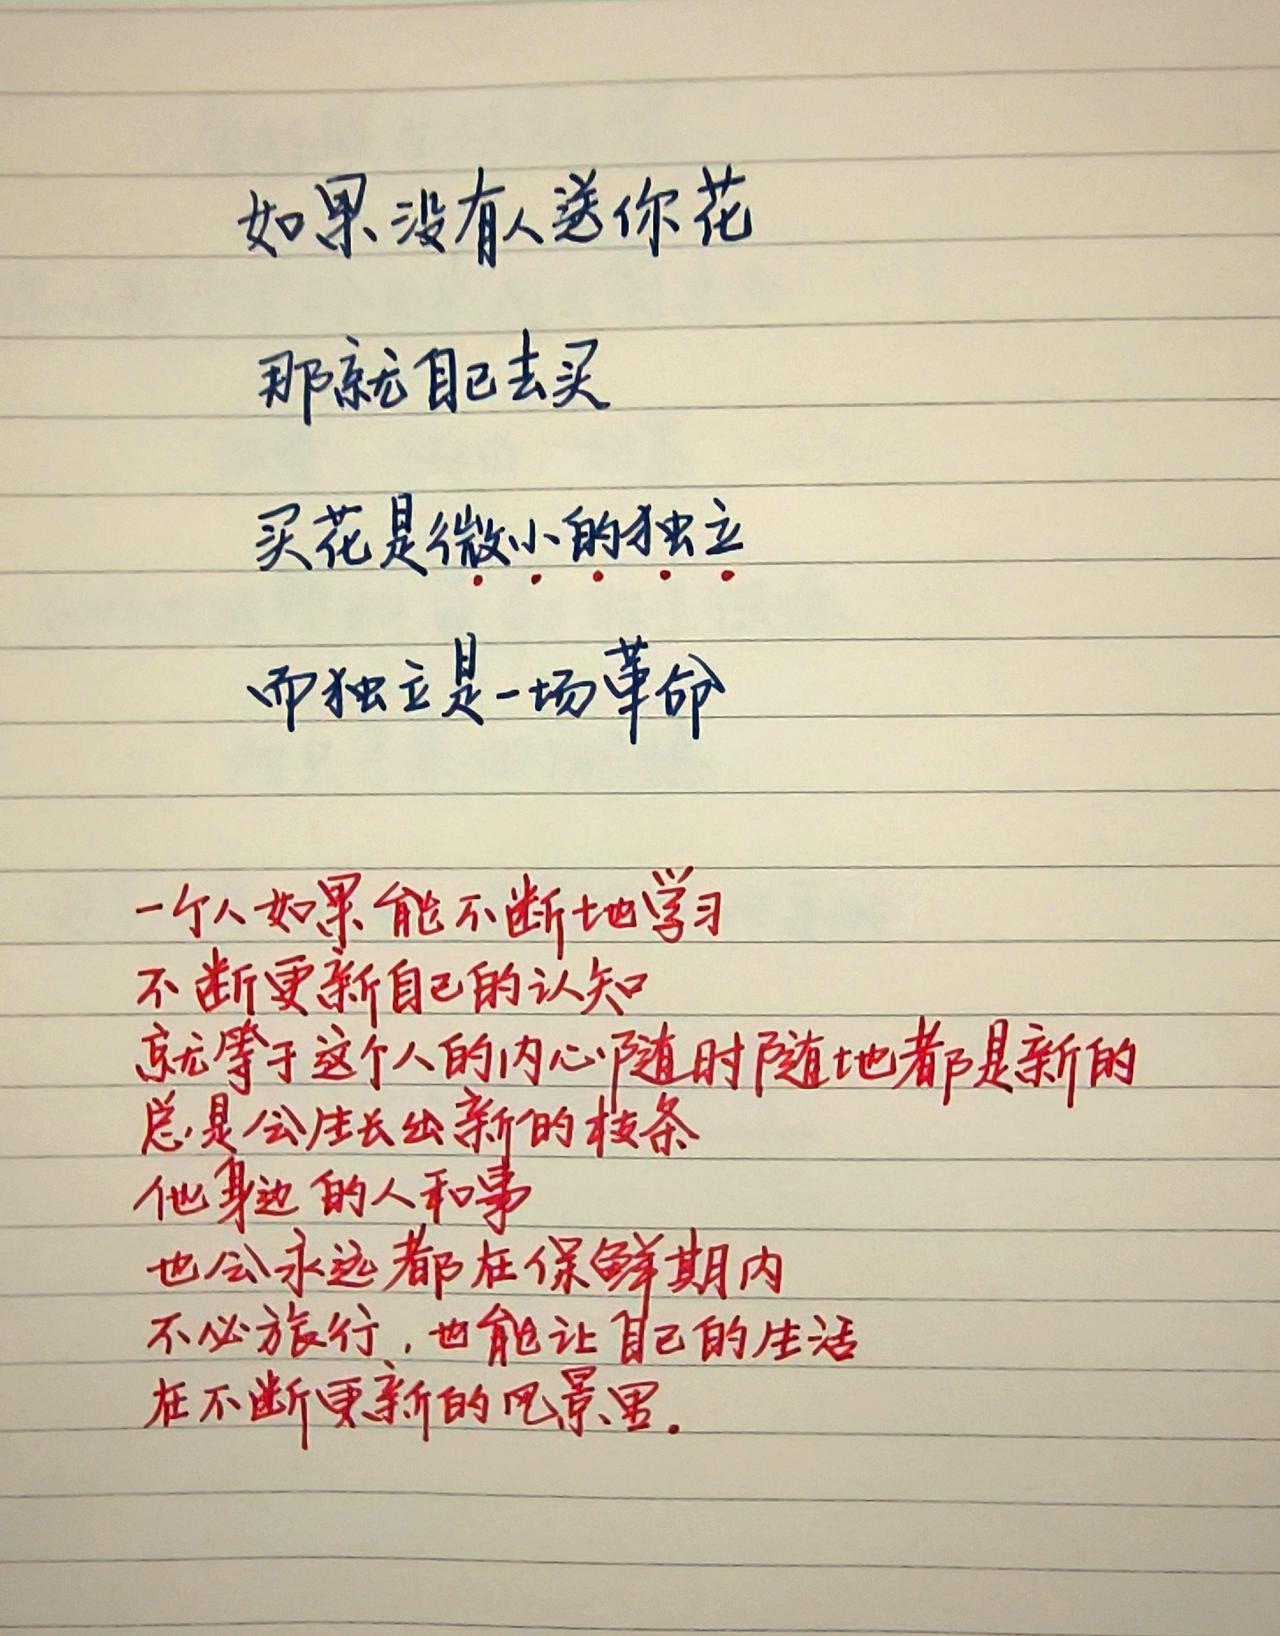 如果没有人送你花
那就自己去买
买花是微小的独立
而独立是一场革命
一个人如果能不断地学习
不断更新自己的认知
就等于这个人的内心随时随地都是新的
总是会生长出新的枝条
他身边的人和事
也会永远都在保鲜期内
不必旅行，也能让自己的生活
在不断更新的风景里.